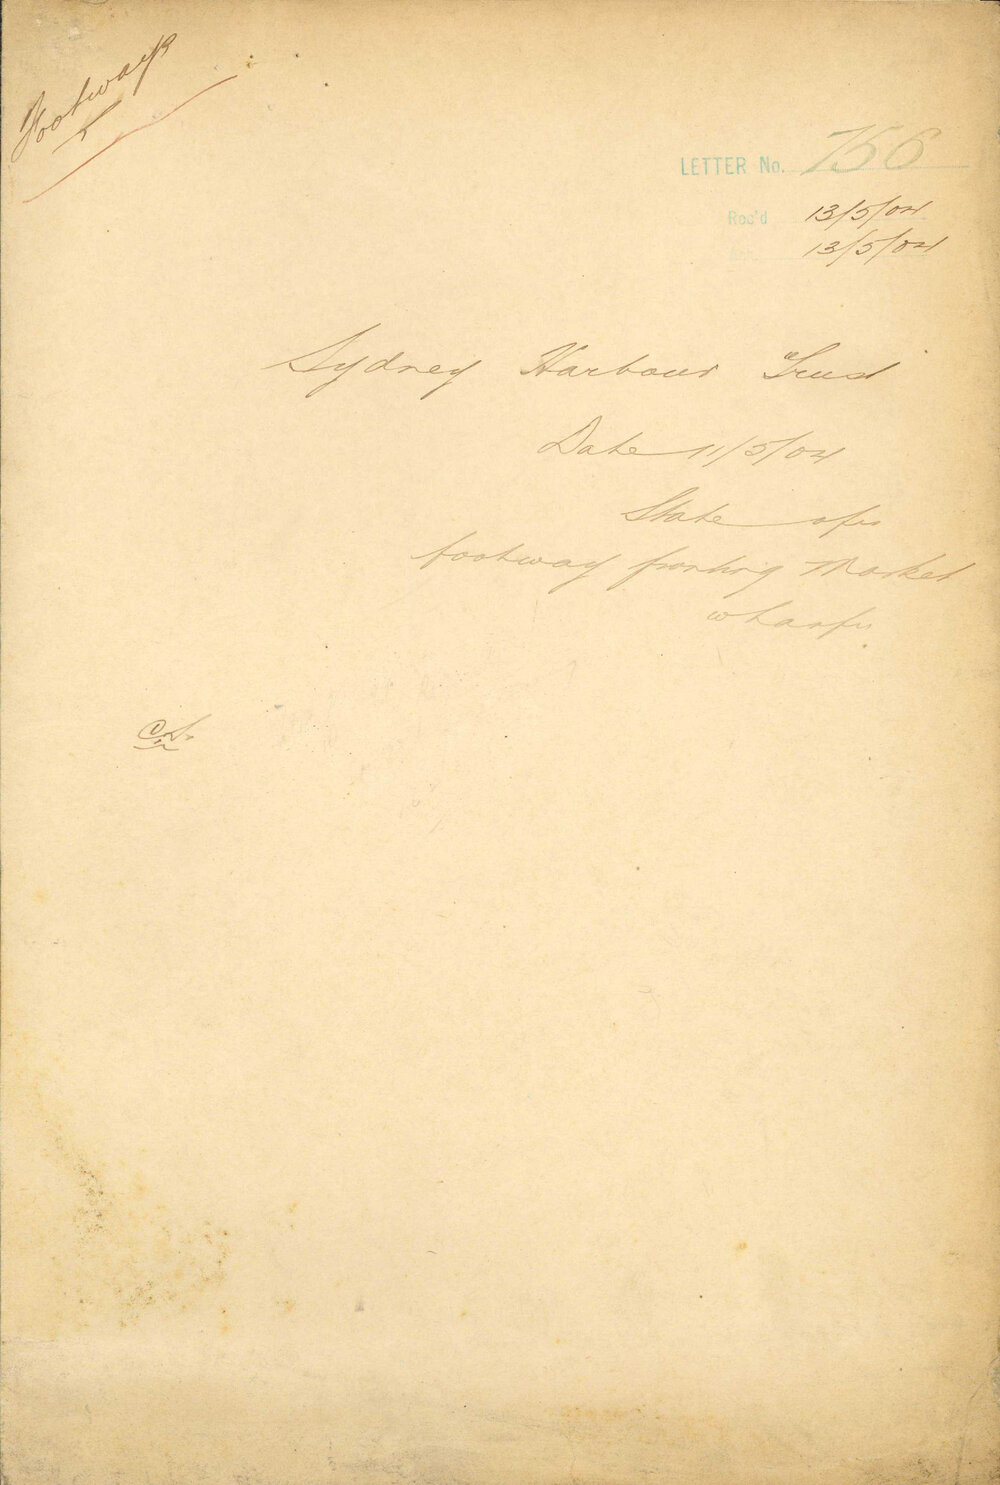 Footways
LETTER No. 756
Rec'd 13/5/04
13/5/04
Sydney Harbour Trust
Date 11/5/04
State of
footway fronting Market
wharf